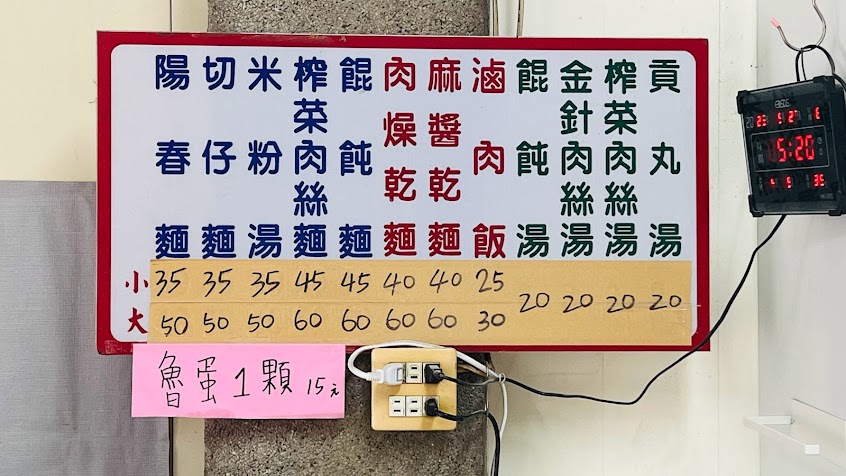 陽春麵
切仔麵
米粉湯
榨菜肉絲麵
餛飩麵
肉燥乾麵
麻醬乾麵
滷肉飯
餛飩湯
金針肉絲湯
榨菜肉絲湯
貢丸湯
小 35 35 35 45 45 40 40 25 20 20 20 20
大 50 50 50 60 60 60 60 30
魯蛋1顆 15元
15:20